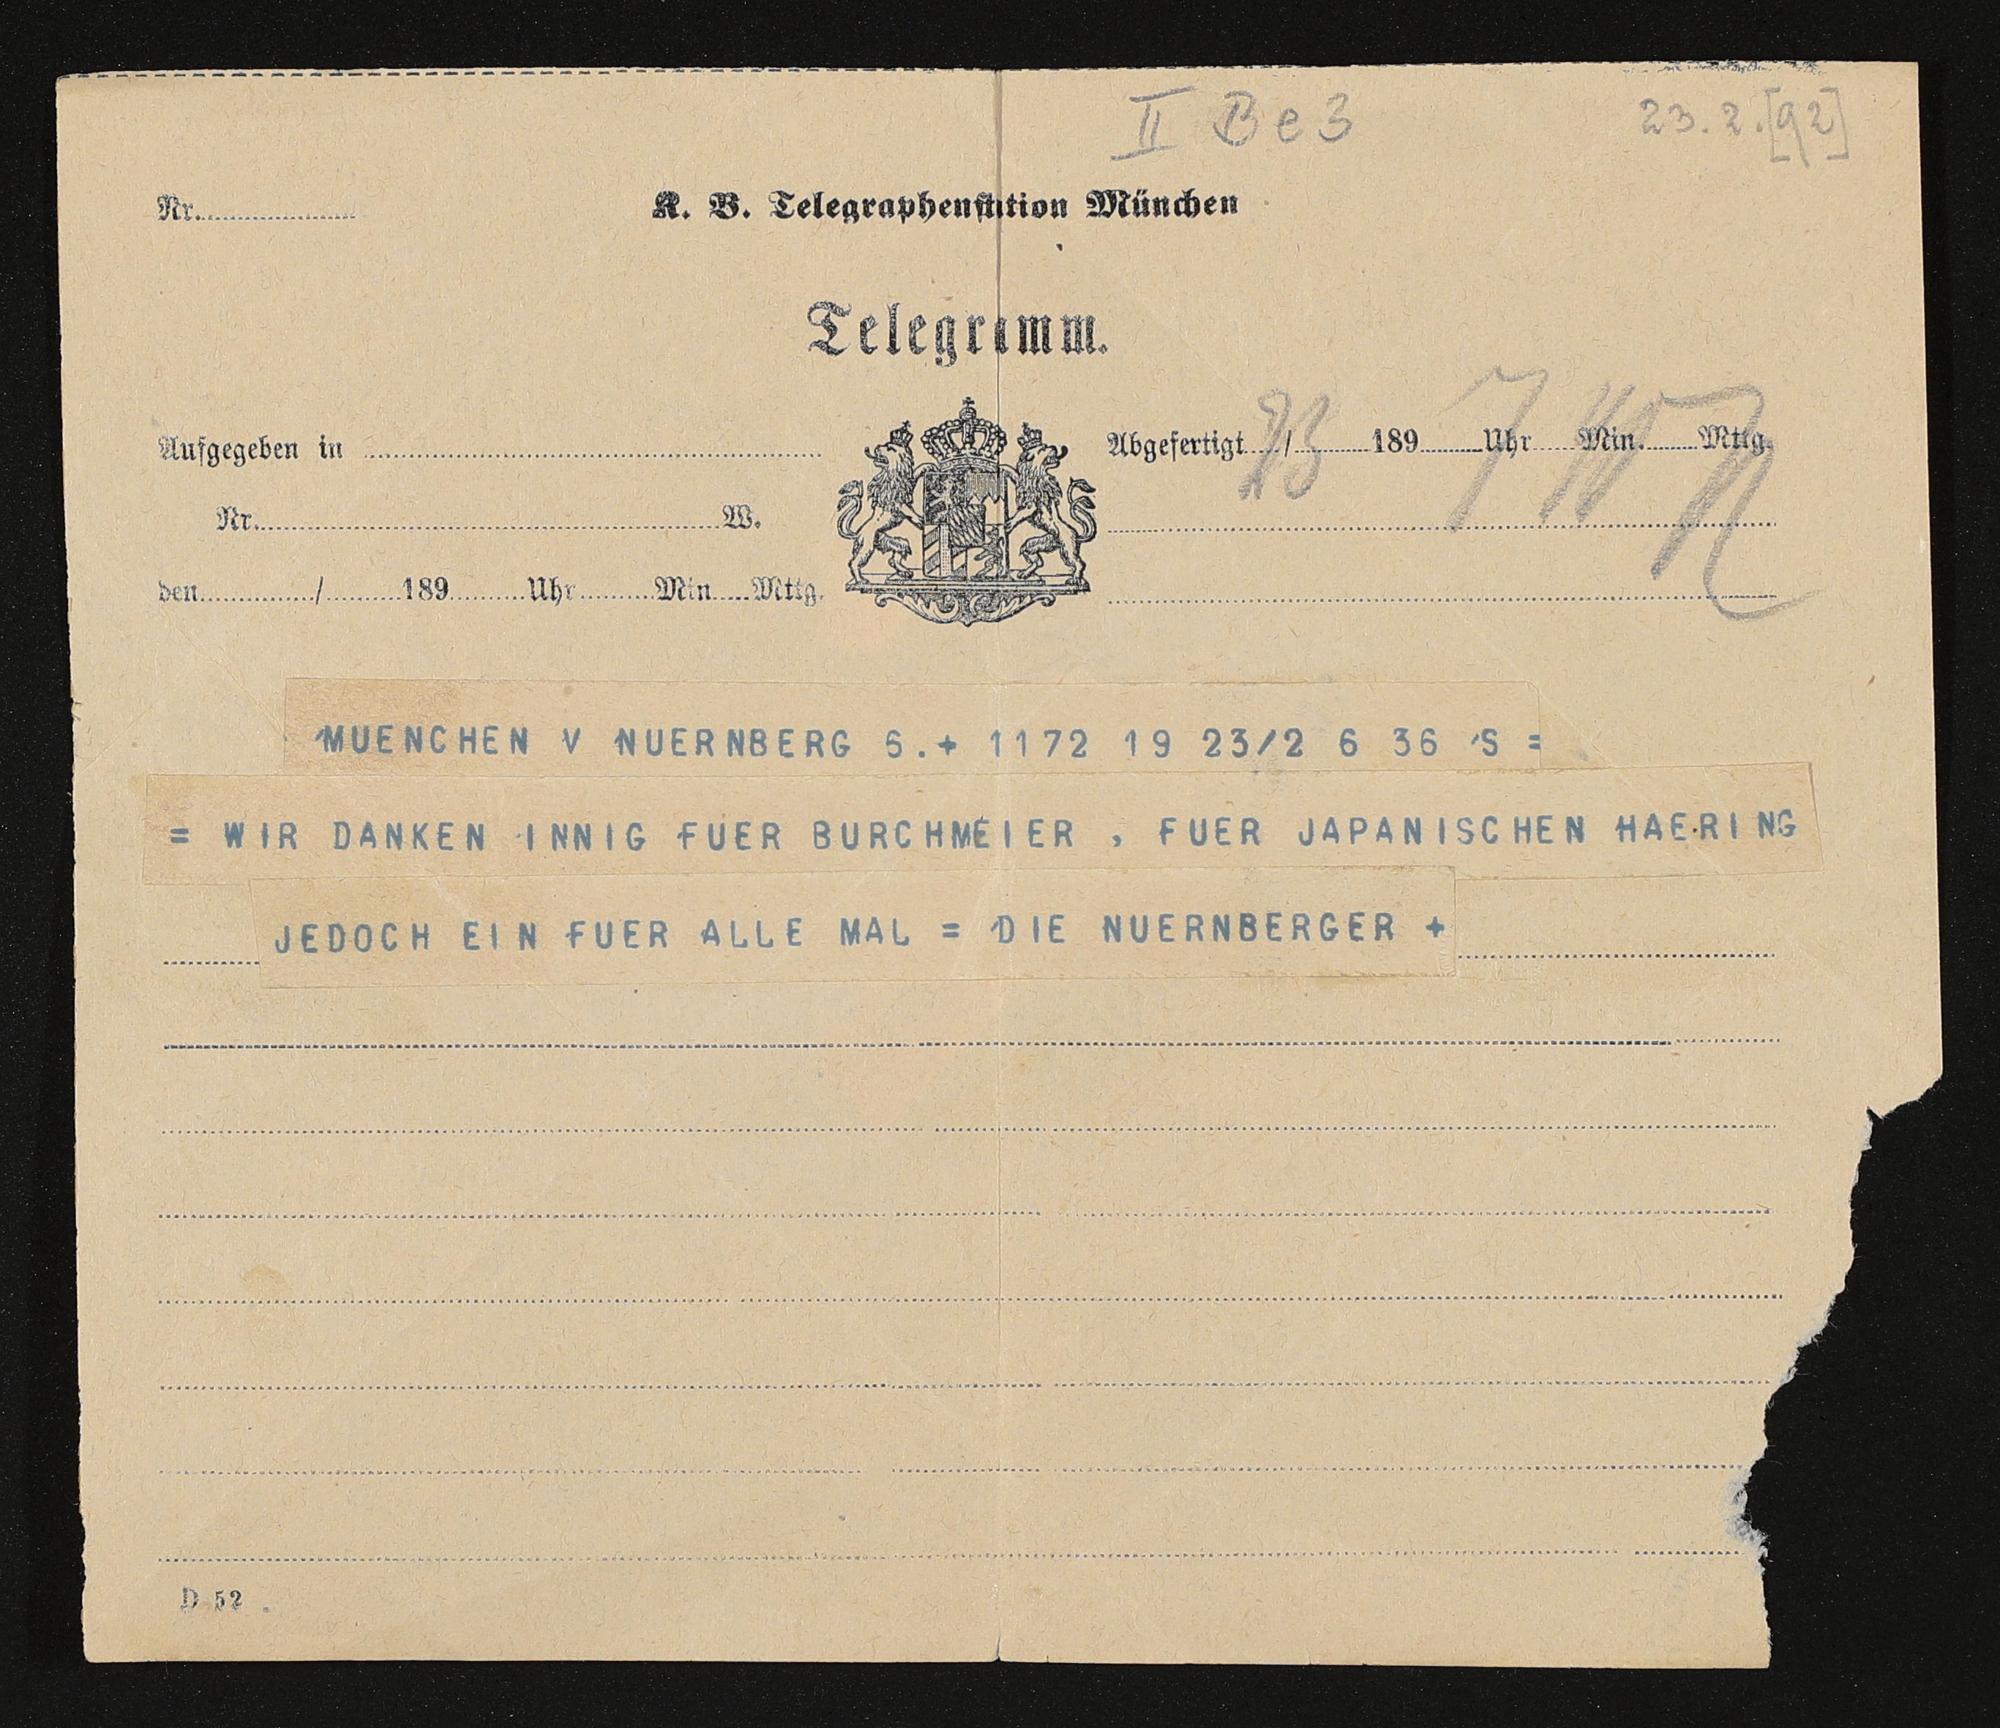 II Be 3
23. 2. [92]
Nr.
K. B. Telegraphenstation München
Telegramm.
Aufgegeben in
Abgefertigt 23 / 189 7 Uhr Min. Mttg.
Nr. W.
den / 189 Uhr Min Mttg.
MUENCHEN V NUERNBERG 6.+ 1172 19 23/2 6 36 'S =
= WIR DANKEN INNIG FUER BURCHMEIER , FUER JAPANISCHEN HAERING
JEDOCH EIN FUER ALLE MAL = DIE NUERNBERGER +
D 52